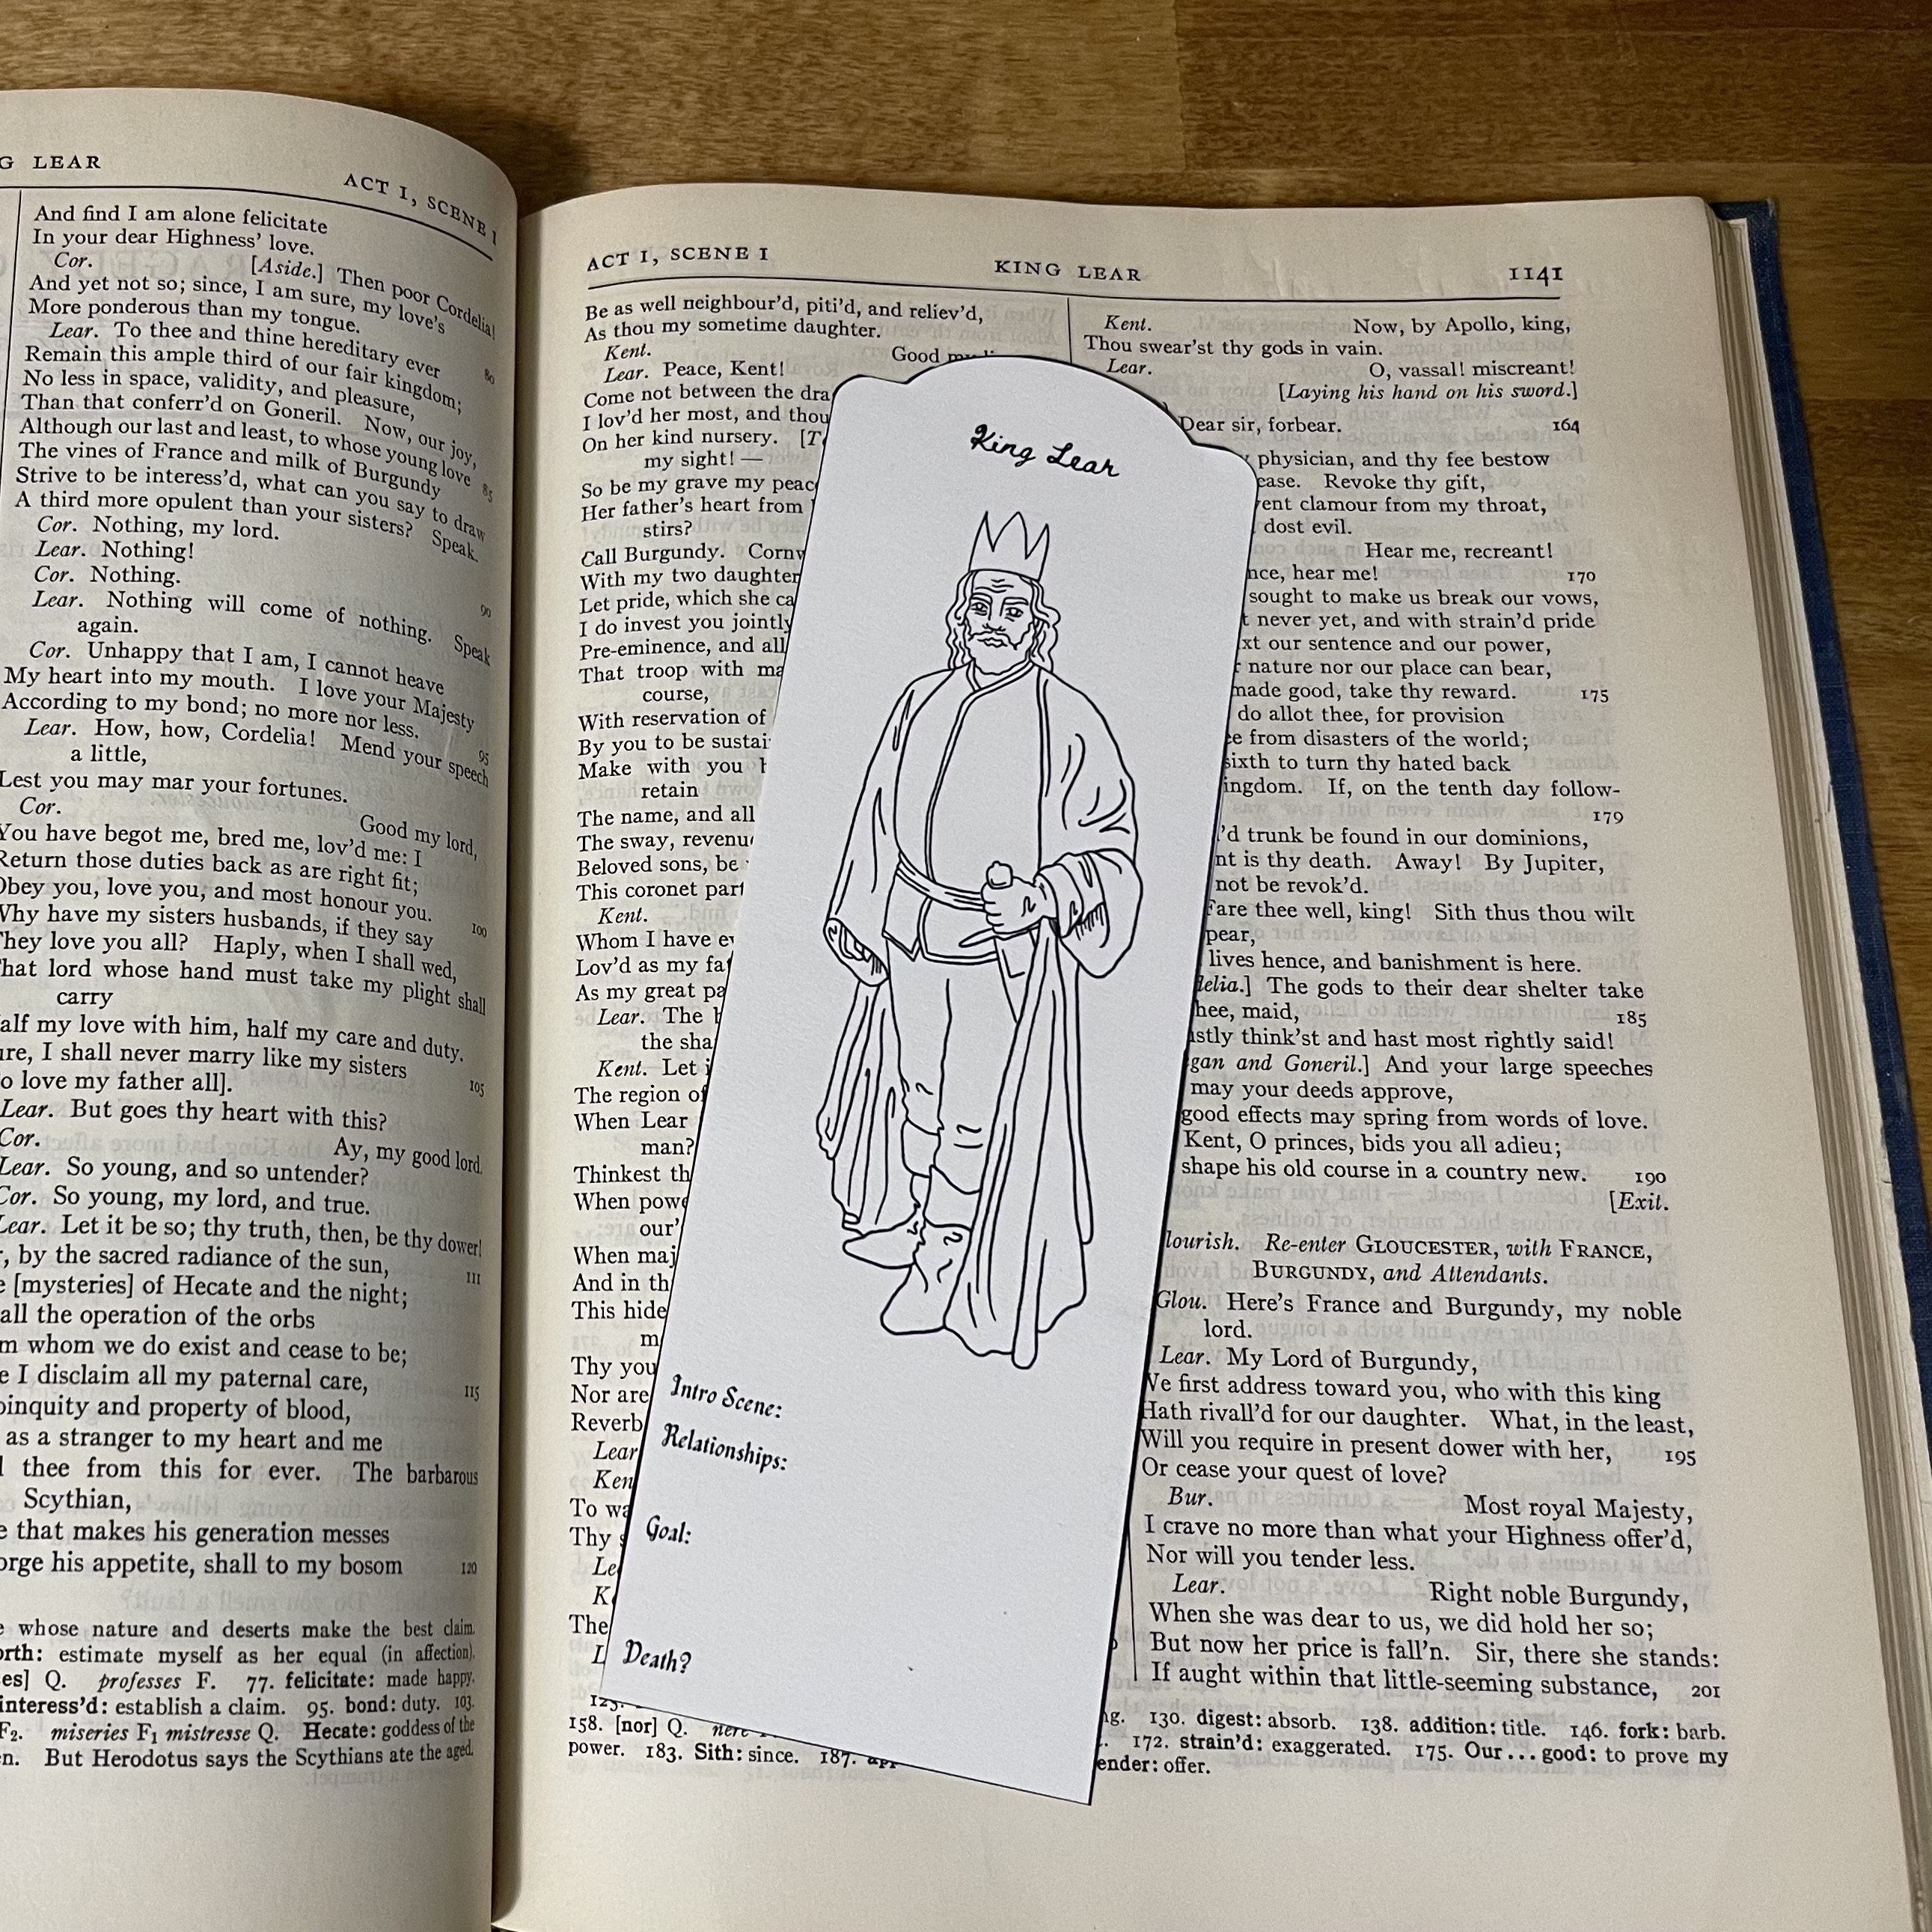 G LEAR
ACT I, SCENE I
And find I am alone felicitate
In your dear Highness' love.
Cor. [Aside.] Then poor Cordelia!
And yet not so; since, I am sure, my love's
More ponderous than my tongue.
Lear. To thee and thine hereditary ever
Remain this ample third of our fair kingdom; 80
No less in space, validity, and pleasure,
Than that conferr'd on Goneril. Now, our joy,
Although our last and least, to whose young love
The vines of France and milk of Burgundy
Strive to be interess'd, what can you say to draw 85
A third more opulent than your sisters? Speak.
Cor. Nothing, my lord.
Lear. Nothing!
Cor. Nothing.
Lear. Nothing will come of nothing. Speak 90
again.
Cor. Unhappy that I am, I cannot heave
My heart into my mouth. I love your Majesty
According to my bond; no more nor less.
Lear. How, how, Cordelia! Mend your speech 95
a little,
Lest you may mar your fortunes.
Cor. Good my lord,
You have begot me, bred me, lov'd me: I
Return those duties back as are right fit;
Obey you, love you, and most honour you.
Why have my sisters husbands, if they say 100
They love you all? Haply, when I shall wed,
That lord whose hand must take my plight shall
carry
alf my love with him, half my care and duty.
ure, I shall never marry like my sisters
o love my father all]. 105
Lear. But goes thy heart with this?
Cor. Ay, my good lord.
Lear. So young, and so untender?
Cor. So young, my lord, and true.
Lear. Let it be so; thy truth, then, be thy dower!
, by the sacred radiance of the sun,
e [mysteries] of Hecate and the night; 111
all the operation of the orbs
m whom we do exist and cease to be;
e I disclaim all my paternal care,
pinquity and property of blood, 115
as a stranger to my heart and me
thee from this for ever. The barbarous
Scythian,
e that makes his generation messes
orge his appetite, shall to my bosom 120
e whose nature and deserts make the best claim.
orth: estimate myself as her equal (in affection).
es] Q. professes F. 77. felicitate: made happy.
interess'd: establish a claim. 95. bond: duty. 103.
F2. miseries F1 mistresse Q. Hecate: goddess of the
n. But Herodotus says the Scythians ate the aged.
ACT I, SCENE I KING LEAR 1141
Be as well neighbour'd, piti'd, and reliev'd,
As thou my sometime daughter.
Kent. Good my
Lear. Peace, Kent!
Come not between the dra
I lov'd her most, and thou
On her kind nursery. [T
my sight! —
So be my grave my peac
Her father's heart from
stirs?
Call Burgundy. Cornw
With my two daughter
Let pride, which she ca
I do invest you jointly
Pre-eminence, and all
That troop with ma
course,
With reservation of
By you to be sustai
Make with you
retain
The name, and all
The sway, revenu
Beloved sons, be
This coronet part
Kent.
Whom I have ev
Lov'd as my fat
As my great pa
Lear. The b
the sha
Kent. Let i
The region of
When Lear
man?
Thinkest th
When powe
our'
When maj
And in th
This hide
m
Thy you
Nor are
Reverb
Lear
Ken
To wa
Thy s
Le
K
The
L
123.
158. [nor] Q.
power. 183. Sith: since. 187.
King Lear
Intro Scene:
Relationships:
Goal:
Death?
Kent. Now, by Apollo, king,
Thou swear'st thy gods in vain.
Lear. O, vassal! miscreant!
[Laying his hand on his sword.]
Dear sir, forbear. 164
physician, and thy fee bestow
ease. Revoke thy gift,
ent clamour from my throat,
dost evil.
Hear me, recreant!
nce, hear me! 170
sought to make us break our vows,
t never yet, and with strain'd pride
xt our sentence and our power,
nature nor our place can bear,
made good, take thy reward. 175
do allot thee, for provision
ee from disasters of the world;
sixth to turn thy hated back
ingdom. If, on the tenth day follow-
179
'd trunk be found in our dominions,
nt is thy death. Away! By Jupiter,
not be revok'd.
Fare thee well, king! Sith thus thou wilt
pear,
lives hence, and banishment is here.
delia.] The gods to their dear shelter take
hee, maid, 185
ustly think'st and hast most rightly said!
gan and Goneril.] And your large speeches
may your deeds approve,
good effects may spring from words of love.
Kent, O princes, bids you all adieu;
shape his old course in a country new. 190
[Exit.
lourish. Re-enter GLOUCESTER, with FRANCE,
BURGUNDY, and Attendants.
Glou. Here's France and Burgundy, my noble
lord.
Lear. My Lord of Burgundy,
We first address toward you, who with this king
Hath rivall'd for our daughter. What, in the least,
Will you require in present dower with her, 195
Or cease your quest of love?
Bur. Most royal Majesty,
I crave no more than what your Highness offer'd,
Nor will you tender less.
Lear. Right noble Burgundy,
When she was dear to us, we did hold her so;
But now her price is fall'n. Sir, there she stands:
If aught within that little-seeming substance, 201
ng. 130. digest: absorb. 138. addition: title. 146. fork: barb.
172. strain'd: exaggerated. 175. Our ... good: to prove my
ender: offer.